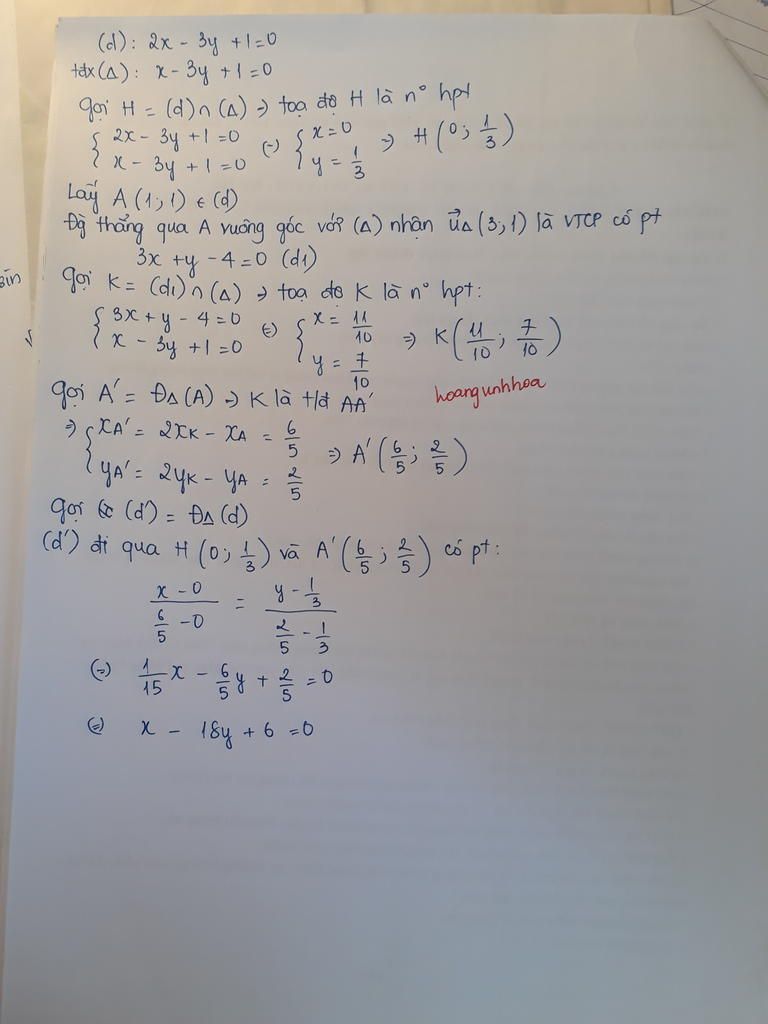 (d): 2x - 3y + 1 = 0
tđx (Δ): x - 3y + 1 = 0
Gọi H = (d) ∩ (Δ) => toạ độ H là n° hpt
{ 2x - 3y + 1 = 0 (=) { x = 0 => H (0; 1/3)
{ x - 3y + 1 = 0 { y = 1/3
Lấy A (1; 1) ∈ (d)
Đg thẳng qua A vuông góc với (Δ) nhận u⃗Δ (3; 1) là VTCP có pt
3x + y - 4 = 0 (d1)
Gọi K = (d1) ∩ (Δ) => toạ độ K là n° hpt:
{ 3x + y - 4 = 0 (=) { x = 11/10 => K (11/10; 7/10)
{ x - 3y + 1 = 0 { y = 7/10
hoangunhhoa
Gọi A' = ĐΔ (A) => K là t/đ AA'
=> { xA' = 2xK - xA = 6/5 => A' (6/5; 2/5)
{ yA' = 2yK - yA = 2/5
Gọi (d') = ĐΔ (d)
(d') đi qua H (0; 1/3) và A' (6/5; 2/5) có pt:
(x - 0)/(6/5 - 0) = (y - 1/3)/(2/5 - 1/3)
(=) 1/15 x - 6/5 y + 2/5 = 0
(=) x - 18y + 6 = 0